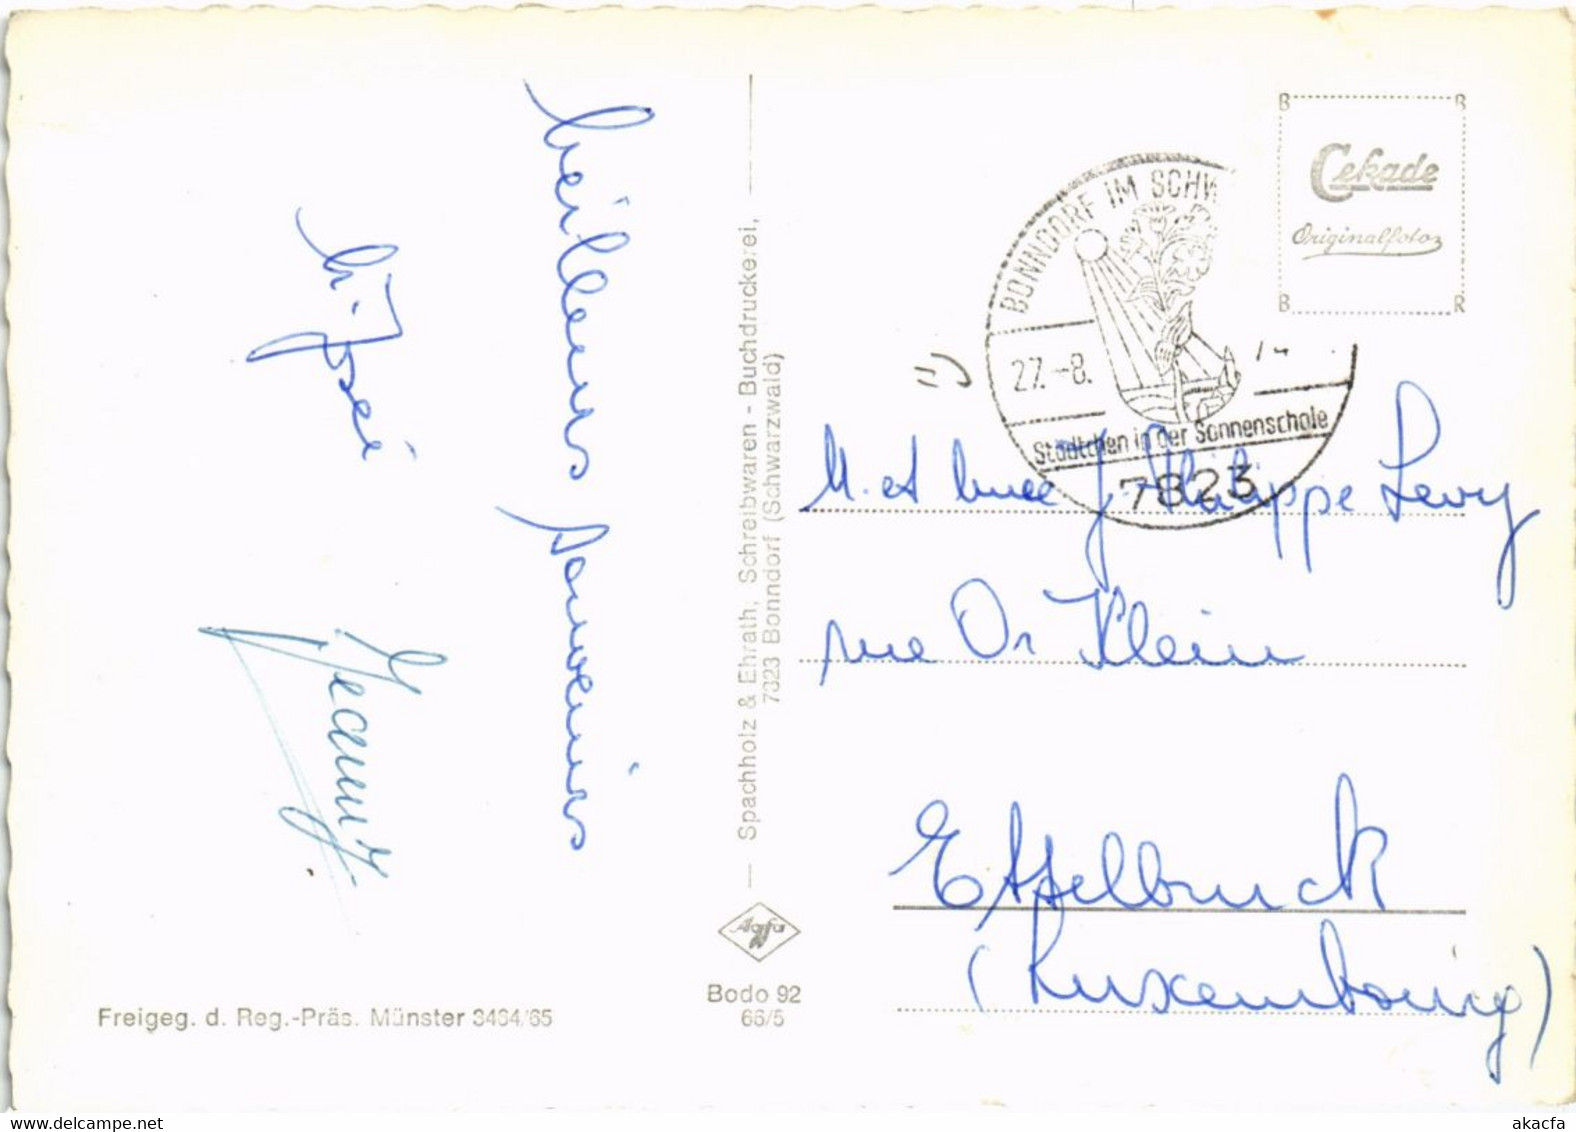 Meilleurs souvenirs
Jeanny
Spachholz & Ehrath, Schreibwaren - Buchdruckerei,
7823 Bonndorf (Schwarzwald)
Agfa
Bodo 92
66/5
Freigeg. d. Reg.-Präs. Münster 3464/65
B R
Cekade
Originalfoto
B R
BONNDORF IM SCHW
27.-8.
Städtchen in der Sonnenschale
7823
M. et Mme J. Philippe Levy
rue Dr Klein
Ettelbruck
(Luxembourg)
www.delcampe.net
akacfa